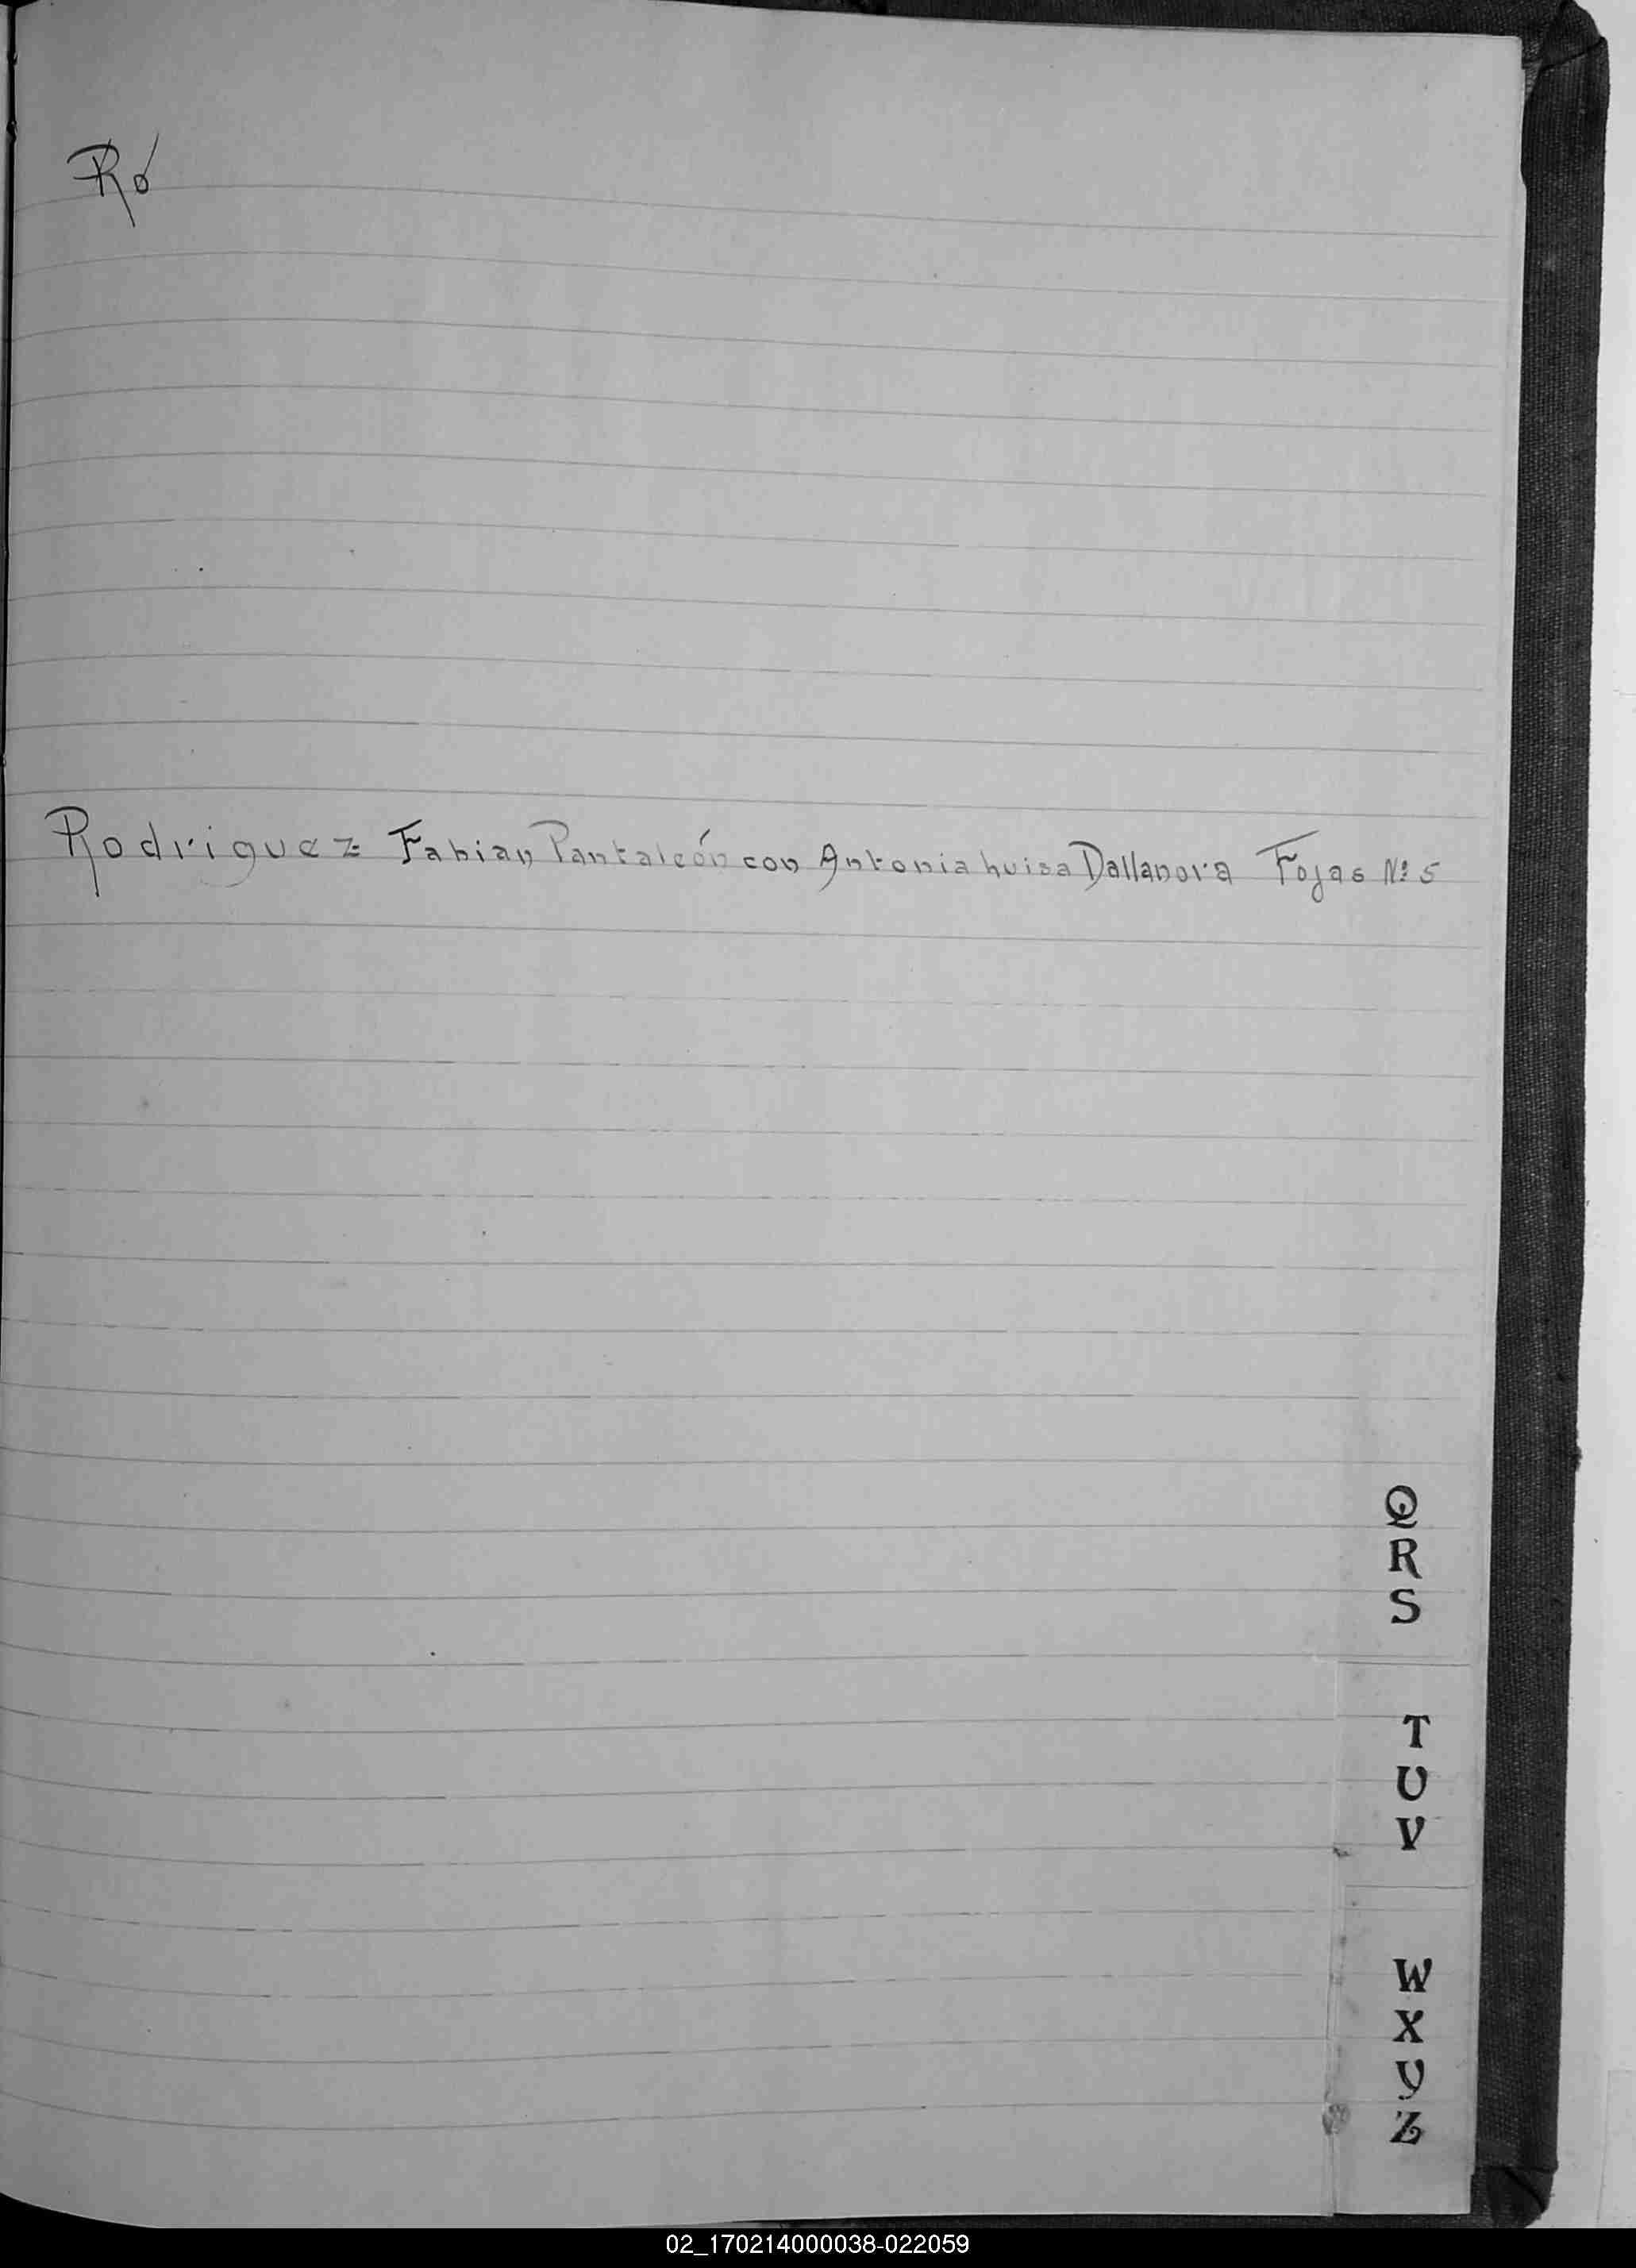 Ró
Rodriguez Fabian Pantaleón con Antonia Luisa Dallanora Fojas Nº 5
Q
R
S
T
U
V
W
X
Y
Z
02_170214000038-022059